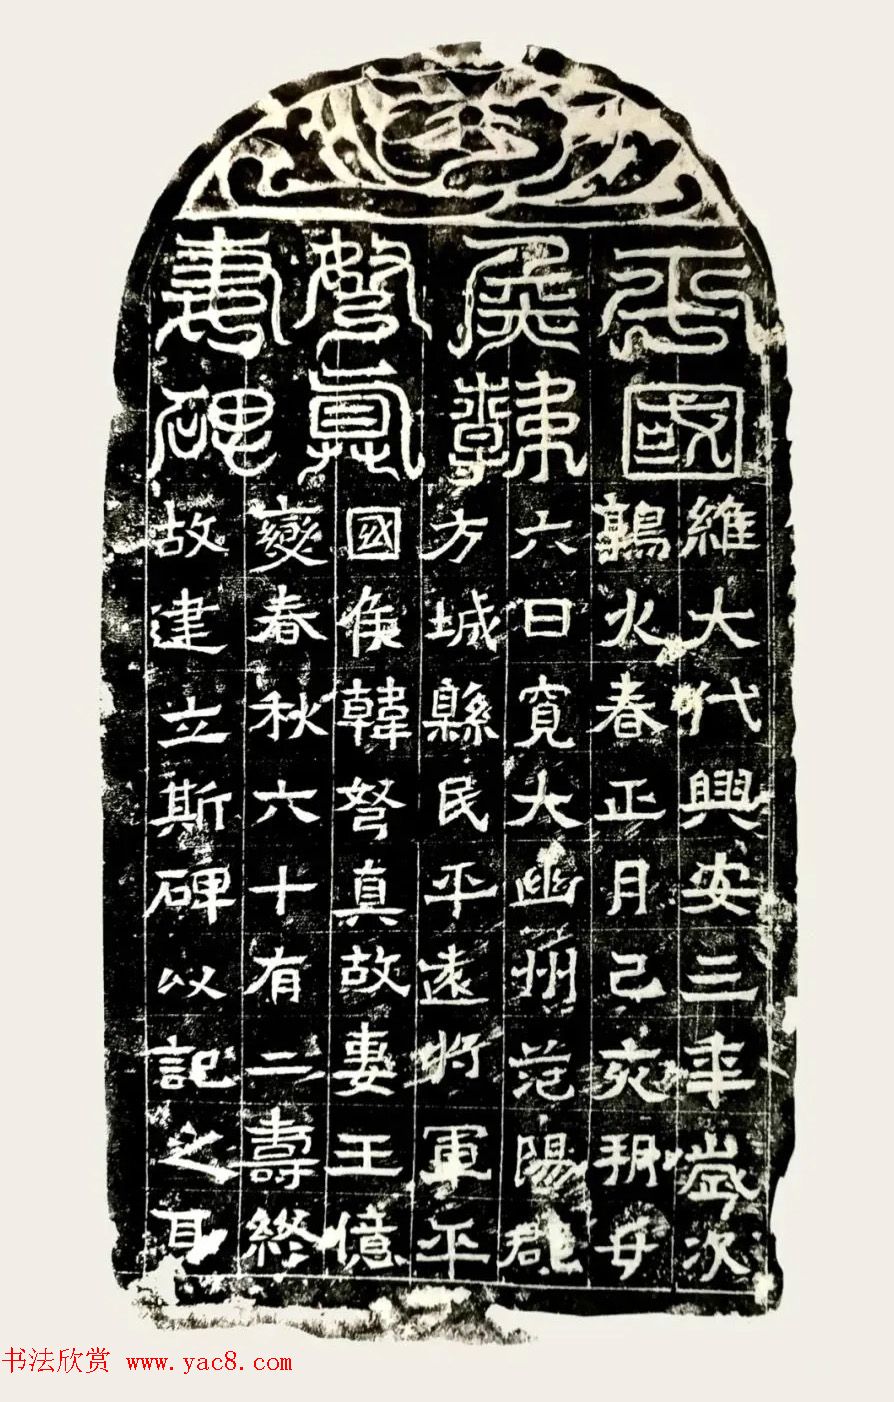 平國
侯韓
弩真
妻碑
維大代興安三年歲次
鶉火春正月己亥朔廿
六日寬大幽州范陽郡
方城縣民平遠將軍平
國侯韓弩真故妻王億
變春秋六十有二壽終
故建立斯碑以記之耳
书法欣赏 www.yac8.com